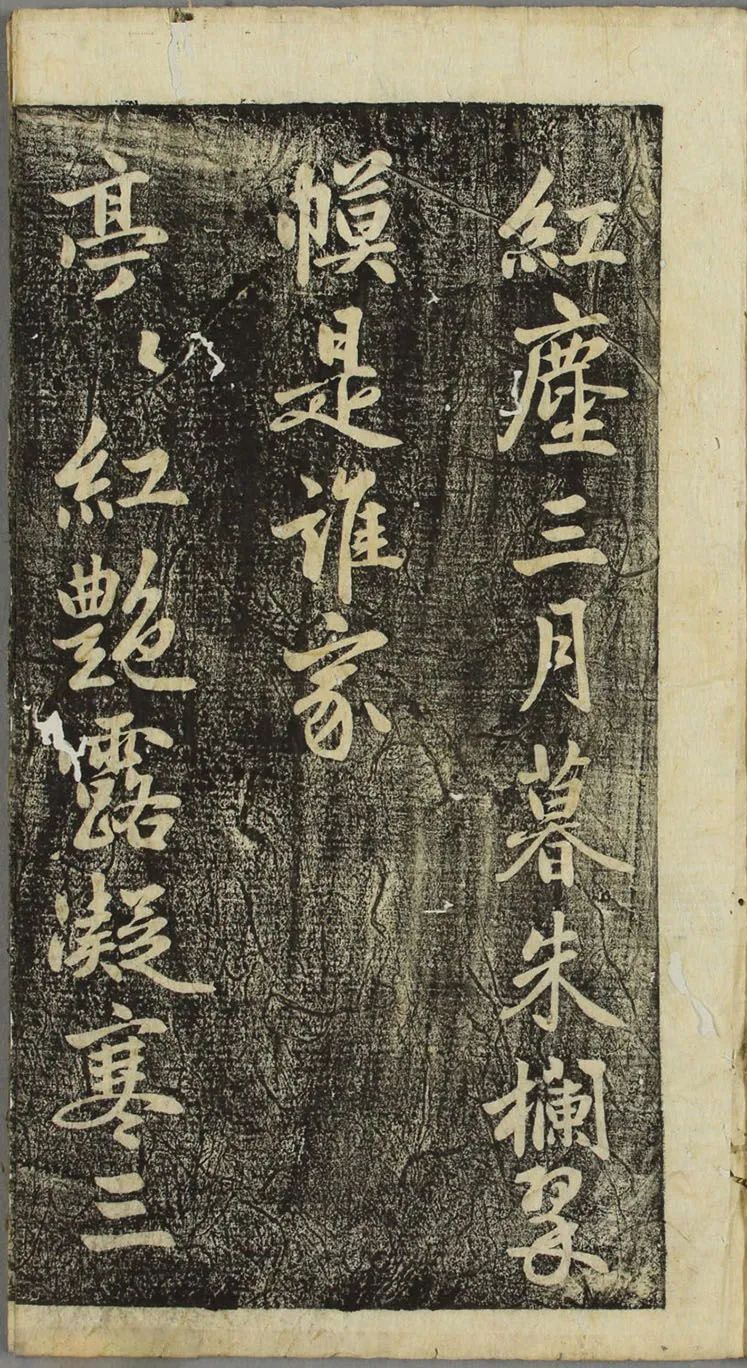 紅塵三月暮朱欄翠
幙是誰家
亭〻紅艶露凝寒三